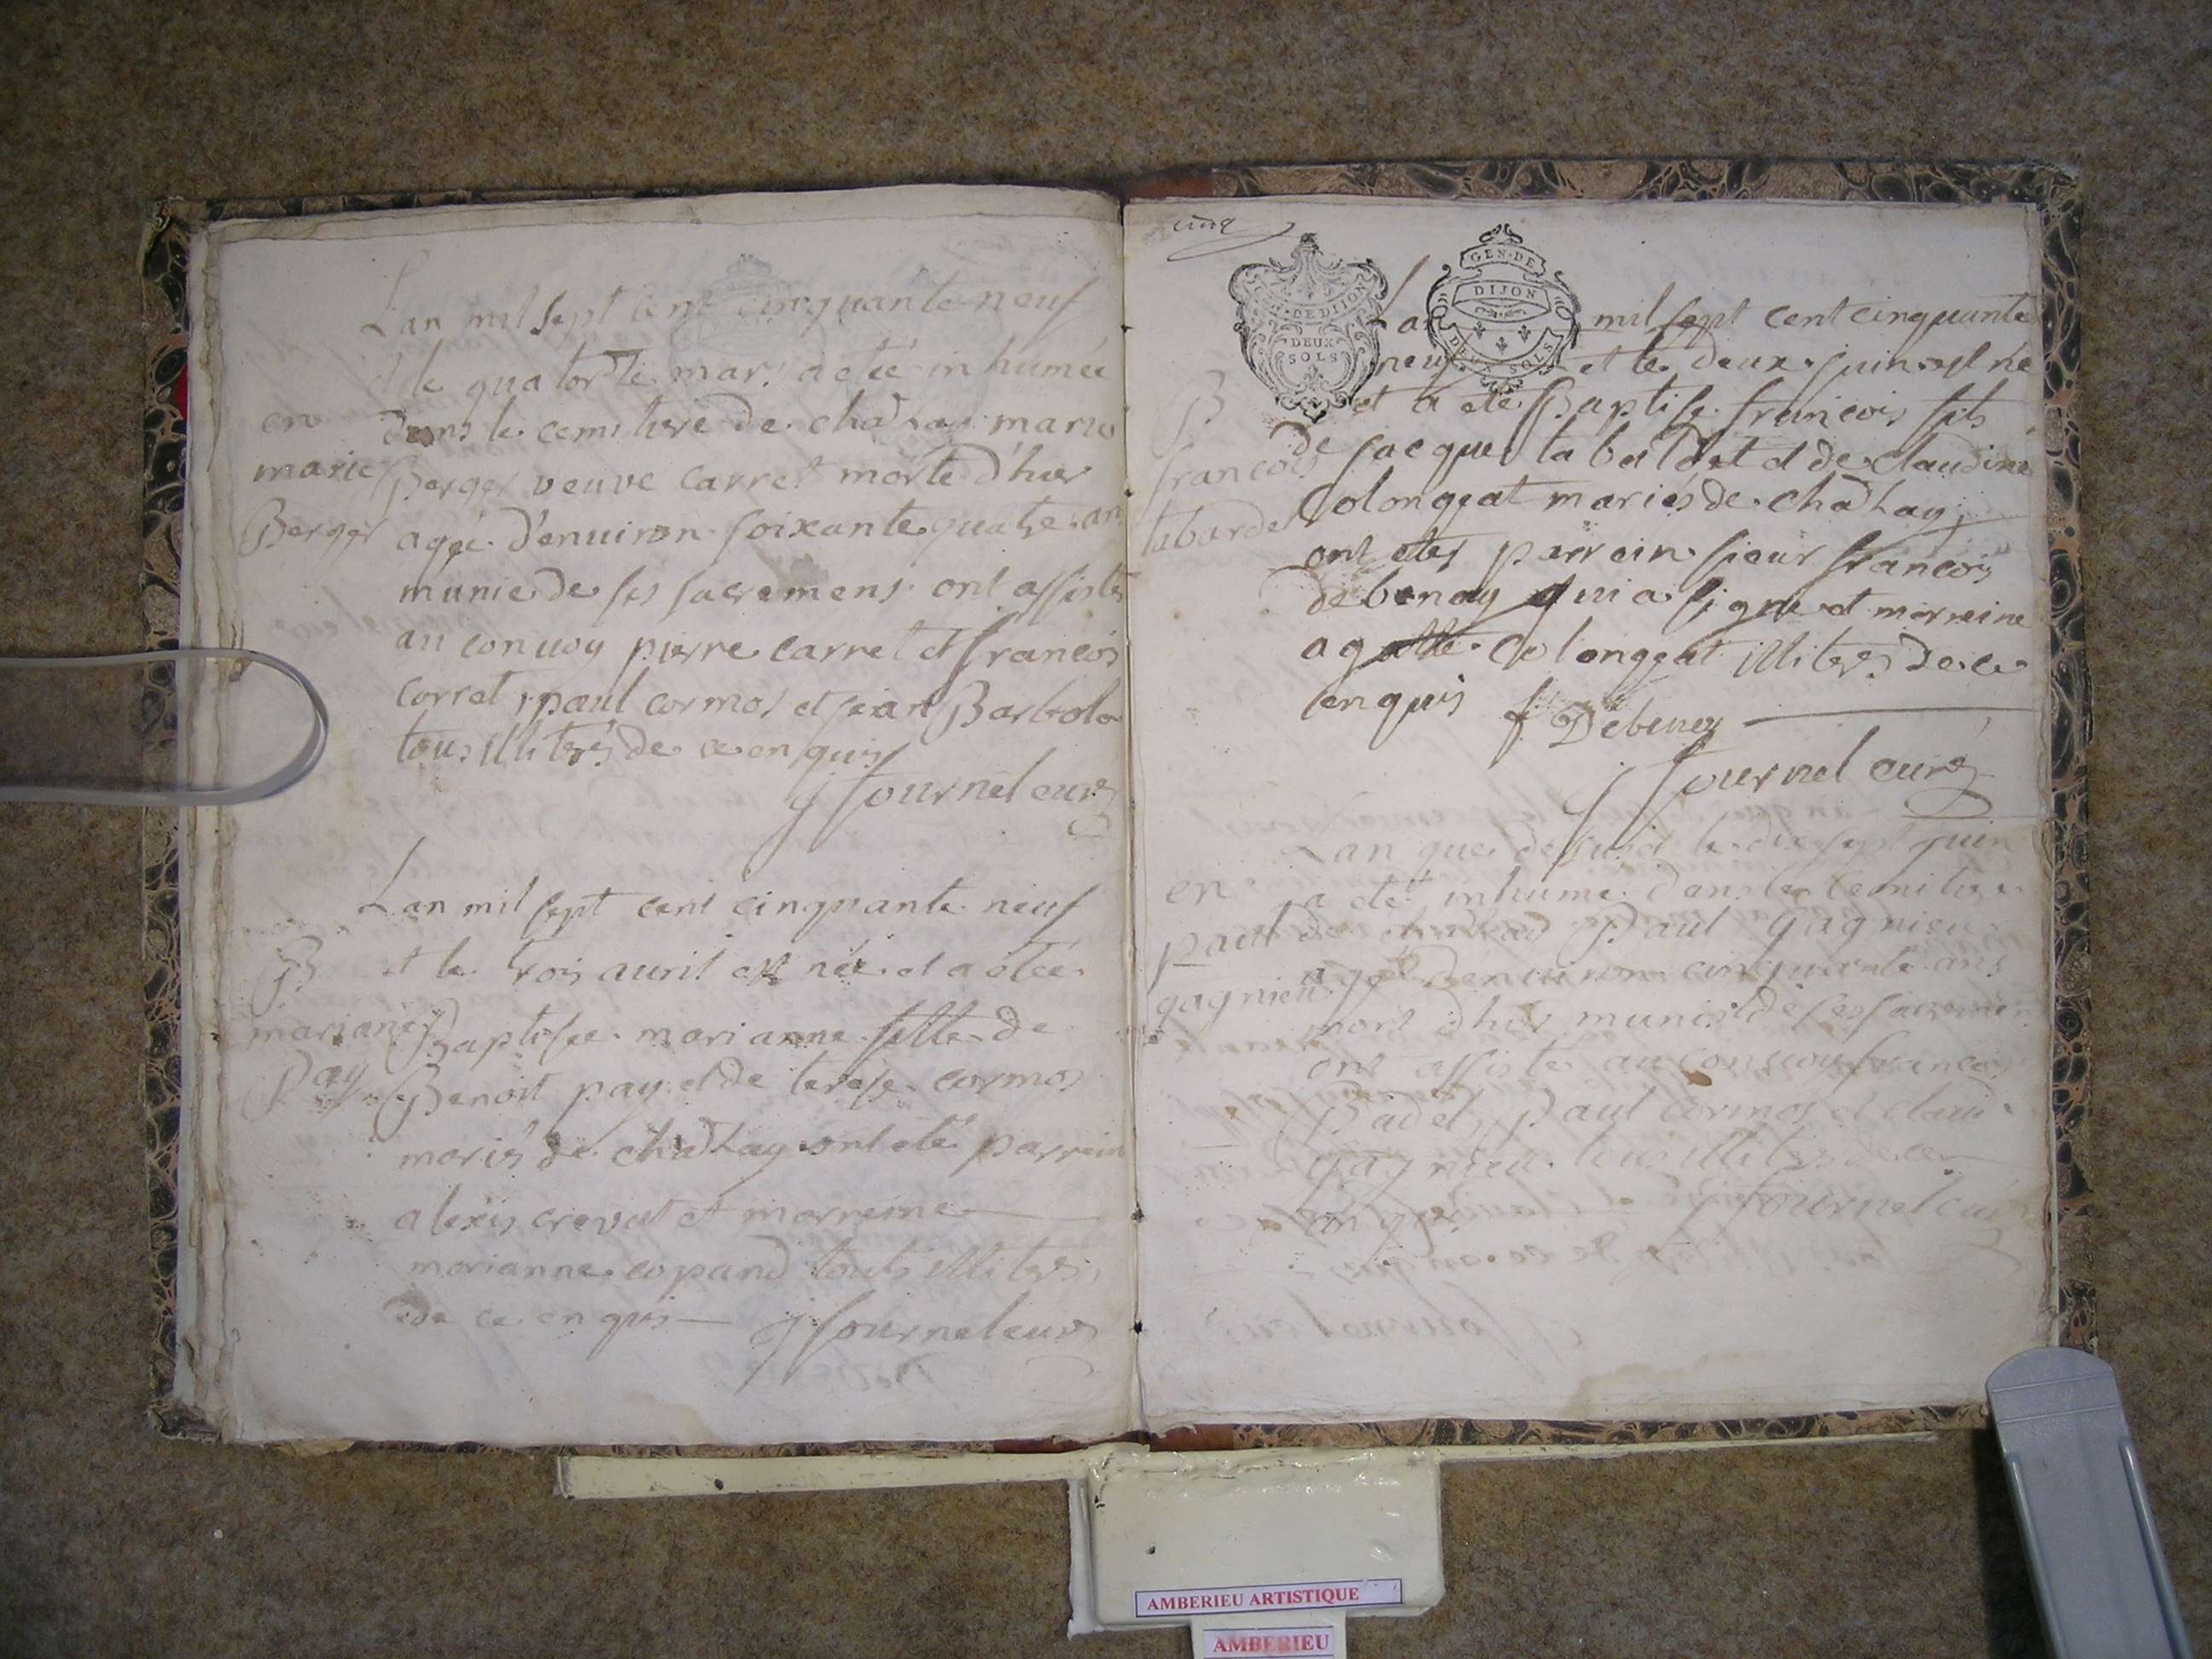 Lan mil sept cent cinquante neuf
et le quatorze mars a etée inhumée
en
dans le cemitiere de chatay marie
marie
Berger veuve carret morte d'hier
Berger
agée d'enuiron soixante quatre ans
munie de ses sacremens ont assistés
au conuoy pierre carret et francois
corret, paul cormos et jean Barbolo
tous illitrés de ce enquis
j fournel curé
Lan mil sept cent cinquante neuf
B
et le trois auril est née et a etée
marianne
Baptisée marianne fille de
Pay
Benoit pay et de terese cormos
mariés de chatay ont eté parrein
alexis crevat et marreine
marianne copand touts illitrés
de ce enquis j fournel curé
cinq
GEN. DE DIJON
DEUX SOLS
GEN. DE
DIJON
DEUX SOLS
Lan mil sept cent cinquante
neuf et le deux juin est né
B
et a eté Baptisé francois fils
de jacque tabardet et de claudine
francois
Colongeat mariés de chatay
tabardet
ont etés parrein sieur francois
debenay qui a signé et marreine
agathe Colongeat illitrés de ce
enquis f Debeney
j fournel curé
Lan que dessus et le dix sept juin
en
a eté inhumé dans le cemitiere
paul
de Paul gagnieu
gagnieu
agé d'enuiron cinquante ans
mort d'hier munis de ses sacremens
ont assistés au conuoy francois
Badel, Paul Cormos et claude
gagnieu tous illitrés de ce
enquis j fournel curé
AMBERIEU ARTISTIQUE
AMBERIEU